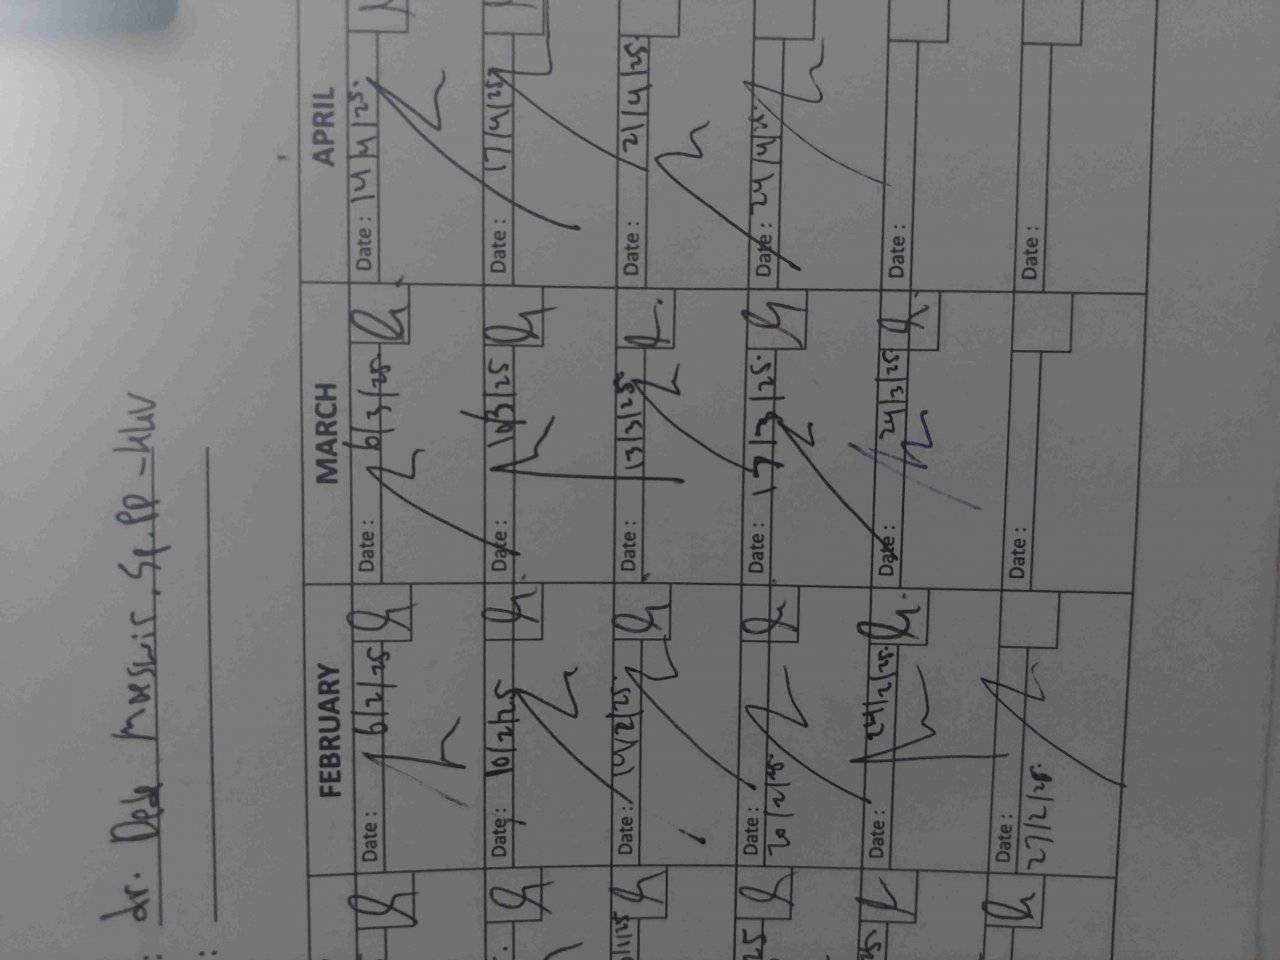 : dr. Dede Moeswir, Sp.PD-KKV
:
FEBRUARY MARCH APRIL
Date: 6/2/25 Date: 6/3/25 Date: 14/4/25.
Date: 10/2/25 Date: 10/3/25 Date: 17/4/25
Date: 14/2/25. Date: 13/3/25. Date: 21/4/25.
Date: 20/2/25. Date: 17/3/25. Date: 24/4/25.
Date: 24/2/25. Date: 24/3/25 Date:
Date: 27/2/25. Date: Date: